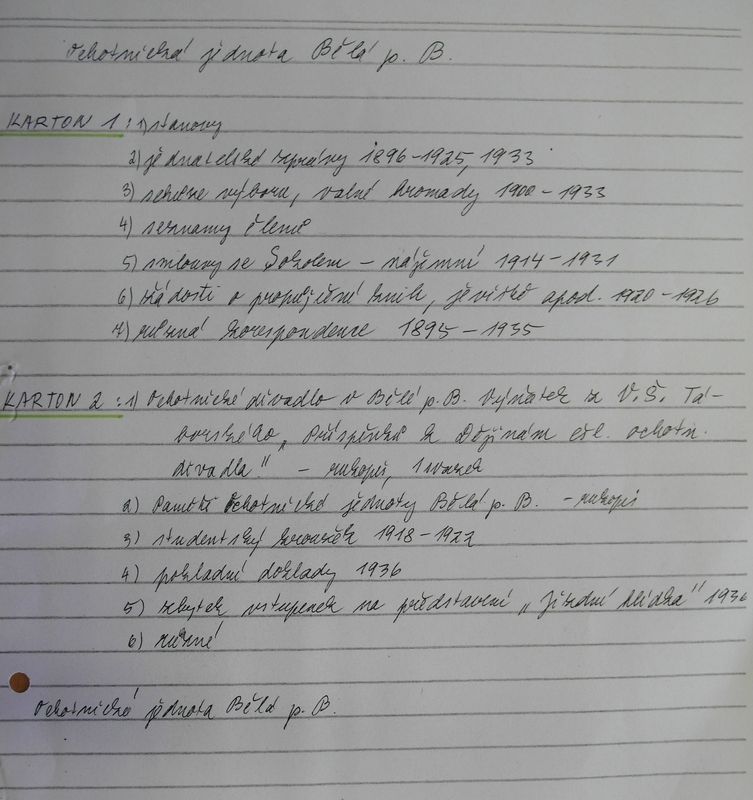 Ochotnická jednota Bělá p. B.
KARTON 1: 1) stanovy
2) jednatelské zprávy 1896-1925, 1933
3) schůze výboru, valné hromady 1900-1933
4) seznamy členů
5) smlouvy se Sokolem - nájemní 1914-1931
6) žádosti o propůjčení knih, jeviště apod. 1920-1926
7) různá korespondence 1895-1935
KARTON 2: 1) Ochotnické divadlo v Bělé p. B. Výňatek z V. Š. Tá-
borského „Příspěvků k Dějinám čsl. ochotn.
divadla" - rukopis, 1 svazek
2) Paměti Ochotnické jednoty Bělá p. B. - rukopis
3) studentský kroužek 1918-1922
4) pokladní doklady 1936
5) zbytek vstupenek na představení „Jízdní hlídka" 1936
6) různé
Ochotnická jednota Bělá p. B.